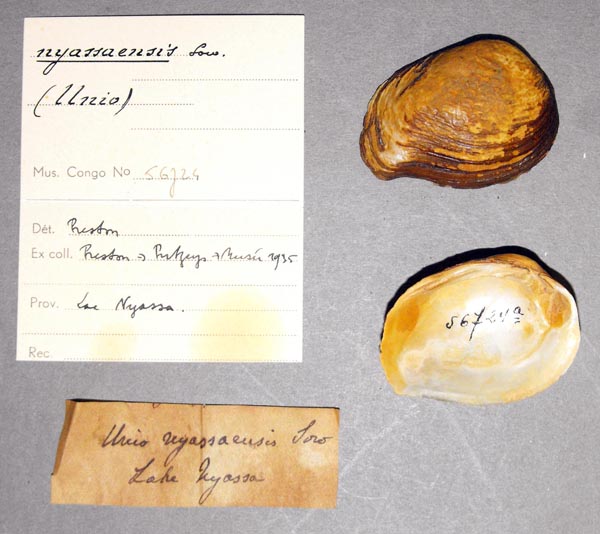 nyassaensis Sow.
(Unio)
Mus. Congo No 56724
Dét. Preston
Ex coll. Preston → Putzeys → Musée 1935
Prov. Lac Nyassa.
Rec.
56724a
Unio nyassaensis Sow
Lake Nyassa